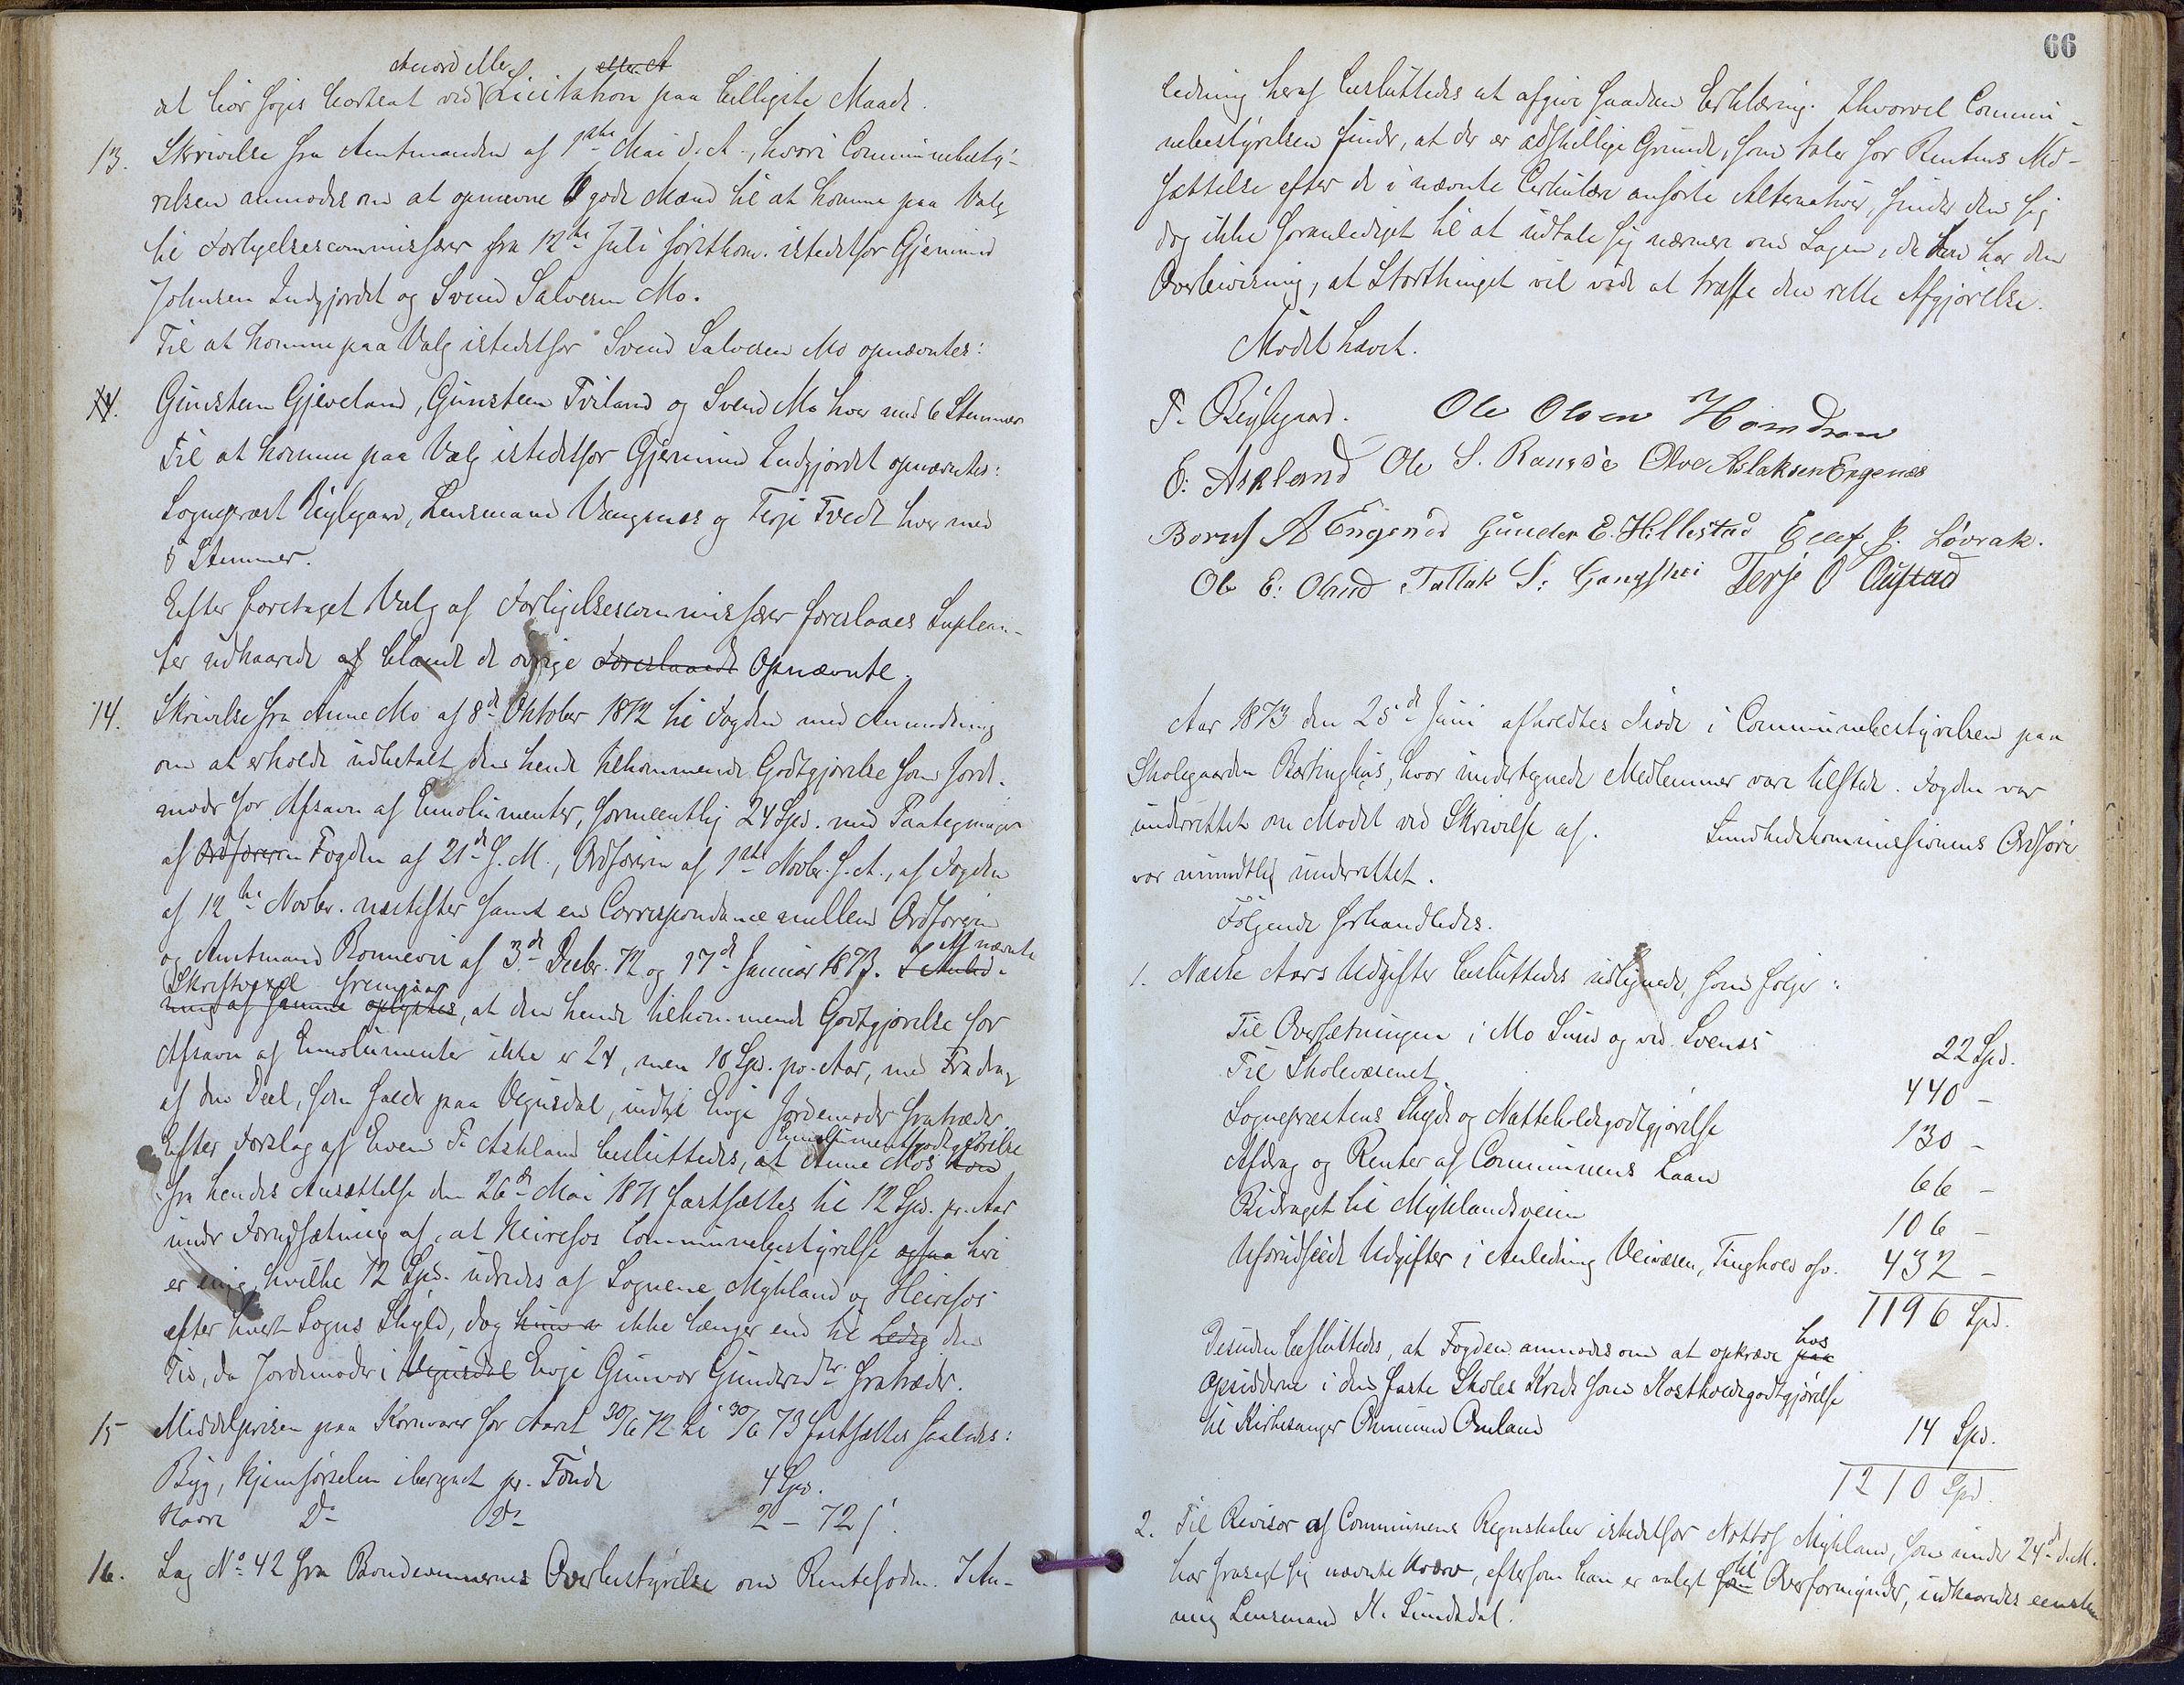 Accord eller eller A
at bør søges bortsat ved Licitation paa billigste Maade.
13. Skrivelse fra Amtmanden af 1ste Mai d. A., hvori Communebesty-
relsen anmodes om at opnævne 6 gode Mænd til at komme paa Valg
til Forligelsescommissærer fra 12te Juli førstkom. istedetfor Gjermund
Johnsen Indgjordet og Svend Salvesen Mo.
Til at komme paa Valg istedetfor Svend Salvesen Mo opnævntes:
14. Gunsten Gjeveland, Gunsteen Tviland og Svend Mo hver med 6 Stemmer
Til at komme paa Valg istedetfor Gjermund Indgjordet opnævntes:
Sognepræst Riylegaard, Lensmand Vangsnes og Terje Tvedt hver med
5 Stemmer.
Efter foretaget Valg af Forligelsescommissærer foreslaaes Suplean-
ter udkaarede af blandt de øvrige Foreslaaede Opnævnte.
14. Skrivelse fra Anne Mo af 8de Oktober 1872 til Fogden med Anmodning
om at erholde udbetalt den hende tilkommende Godtgjørelse som Jord-
moder for Afsavn af Emolumenter, formeentlig 24 Spd. med Paategninger
af Ordføreren Fogden af 21de s. M., Ordføreren af 1ste Novbr. s. A., af Fogden
af 12te Novbr. næstefter samt en Correspondance mellem Ordføreren
og Amtmand Bonnevie af 3de Decbr. 72 og 17de Januar 1873. I Anled- Af nævnte
Skriftvexel fremgaar
ning af samme oplystes, at den hende tilkommende Godtgjørelse for
Afsavn af Emolumenter ikke er 24, men 10 Spd. pr. Aar, med Fradrag
af den Deel, som falder paa Vegusdal, indtil Evje Jordemoder fratræder.
Emolumentsgodtgjørelse
Efter Forslag af Even T. Askland besluttedes, at Anne Mos
fra hendes Ansættelse den 26de Mai 1871 fastsættes til 12 Spd. pr. Aar
under Forudsætning af, at Heirefos Communebestyrelse ogsaa heri
er enig, hvilke 12 Spd. udredes af Sognene Mykland og Heirefos
efter hvert Sogns Skyld, dog ikke længer end til den
Tid, da Jordemoder i Vegusdal Evje Gunvor Gundersdtr. fratræder.
15 Middelprisen paa Kornvarer for Aaret 30/6 72 til 30/6 73 fastsættes saaledes:
Byg, hjemførselen iberegnet pr. Tønde 4 Spd.
Havre Do Do 2 – 72 s.
16. Sag No 42 fra Bondevennernes Overbestyrelse om Rentefoden. I An-
66
ledning heraf besluttedes at afgive saadan Erklæring: Ihvorvel Commu-
nebestyrelsen finder, at der er adskillige Grunde, som taler for Rentens Ned-
sættelse efter de i nævnte Cirkulære anførte Alternativer, finder den sig
dog ikke foranlediget til at udtale sig nærmere om Sagen, da den har den
Overbeviisning, at Storthinget vil vide at træffe den rette Afgjørelse.
Mødet hævet.
T. Riylegaard. Ole Olsen Homdrom
E: Askland Ole S. Ramsø Olve Aslaksen Engenæs
Bernt A Engenæs Gunder E. Hillestad Ellef J. Løvrak.
Ole E: Oland Tallak S: Gangshei Terje O Austad
Aar 1873 den 25de Juni afholdtes Møde i Communebestyrelsen paa
Skolegaarden Bærtinghus, hvor undertegnede Medlemmer vare tilstede. Fogden var
underrettet om Mødet ved Skrivelse af. Sundhedskommissionens Ordfører
var mundtlig underrettet.
Følgende forhandledes.
1. Næste Aars Udgifter besluttedes udlignede, som følger:
Til Oversætningen i Mo Sund og ved Svenes 22 Spd.
Til Skolevæsenet 440 –
Sognepræstens Skyds og Natteholdsgodtgjørelse 130 –
Afdrag og Renter af Communens Laan 66 –
Bidraget til Myklandsveien 106 –
Uforudseede Udgifter i Anledning Veivæsen, Tinghold osv. 432 –
1196 Spd.
Desuden besluttedes, at Fogden anmodes om at opkræve paa hos
Opsidderne i den faste Skoles Kreds som Kostholdsgodtgjørelse
til Kirkesanger Omund Omland 14 Spd.
1210 Spd.
2. Til Revisor af Communens Regnskaber istedetfor Nottof Mykland, som under 24de d. M.
har frasagt sig nævnte Hverv, eftersom han er valgt som til Overformynder, udkaaredes eenstem-
mig Lensmand N. Sundsdal.